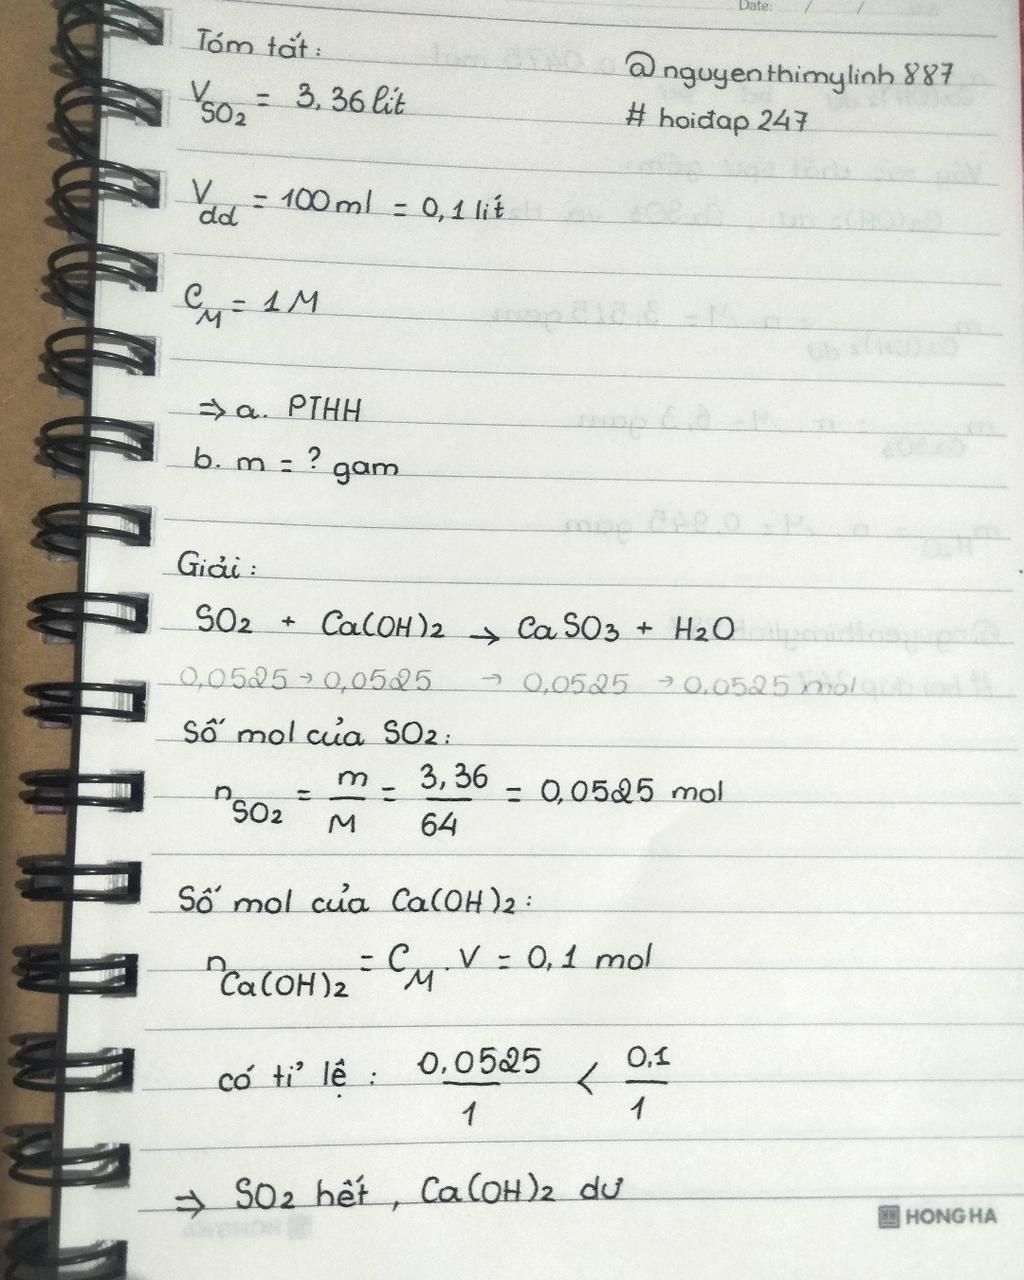 Date: / /
Tóm tắt:
@nguyenthimylinh887
V SO2 = 3,36 lít
# hoiđap 247
V dd = 100ml = 0,1 lít
C M = 1 M
⇒ a. PTHH
b. m = ? gam
Giải:
SO2 + Ca(OH)2 → CaSO3 + H2O
0,0525 → 0,0525 → 0,0525 → 0,0525 mol
Số mol của SO2:
n SO2 = m/M = 3,36/64 = 0,0525 mol
Số mol của Ca(OH)2:
n Ca(OH)2 = C M . V = 0,1 mol
có tỉ lệ: 0,0525/1 < 0,1/1
⇒ SO2 hết, Ca(OH)2 dư
HONG HA